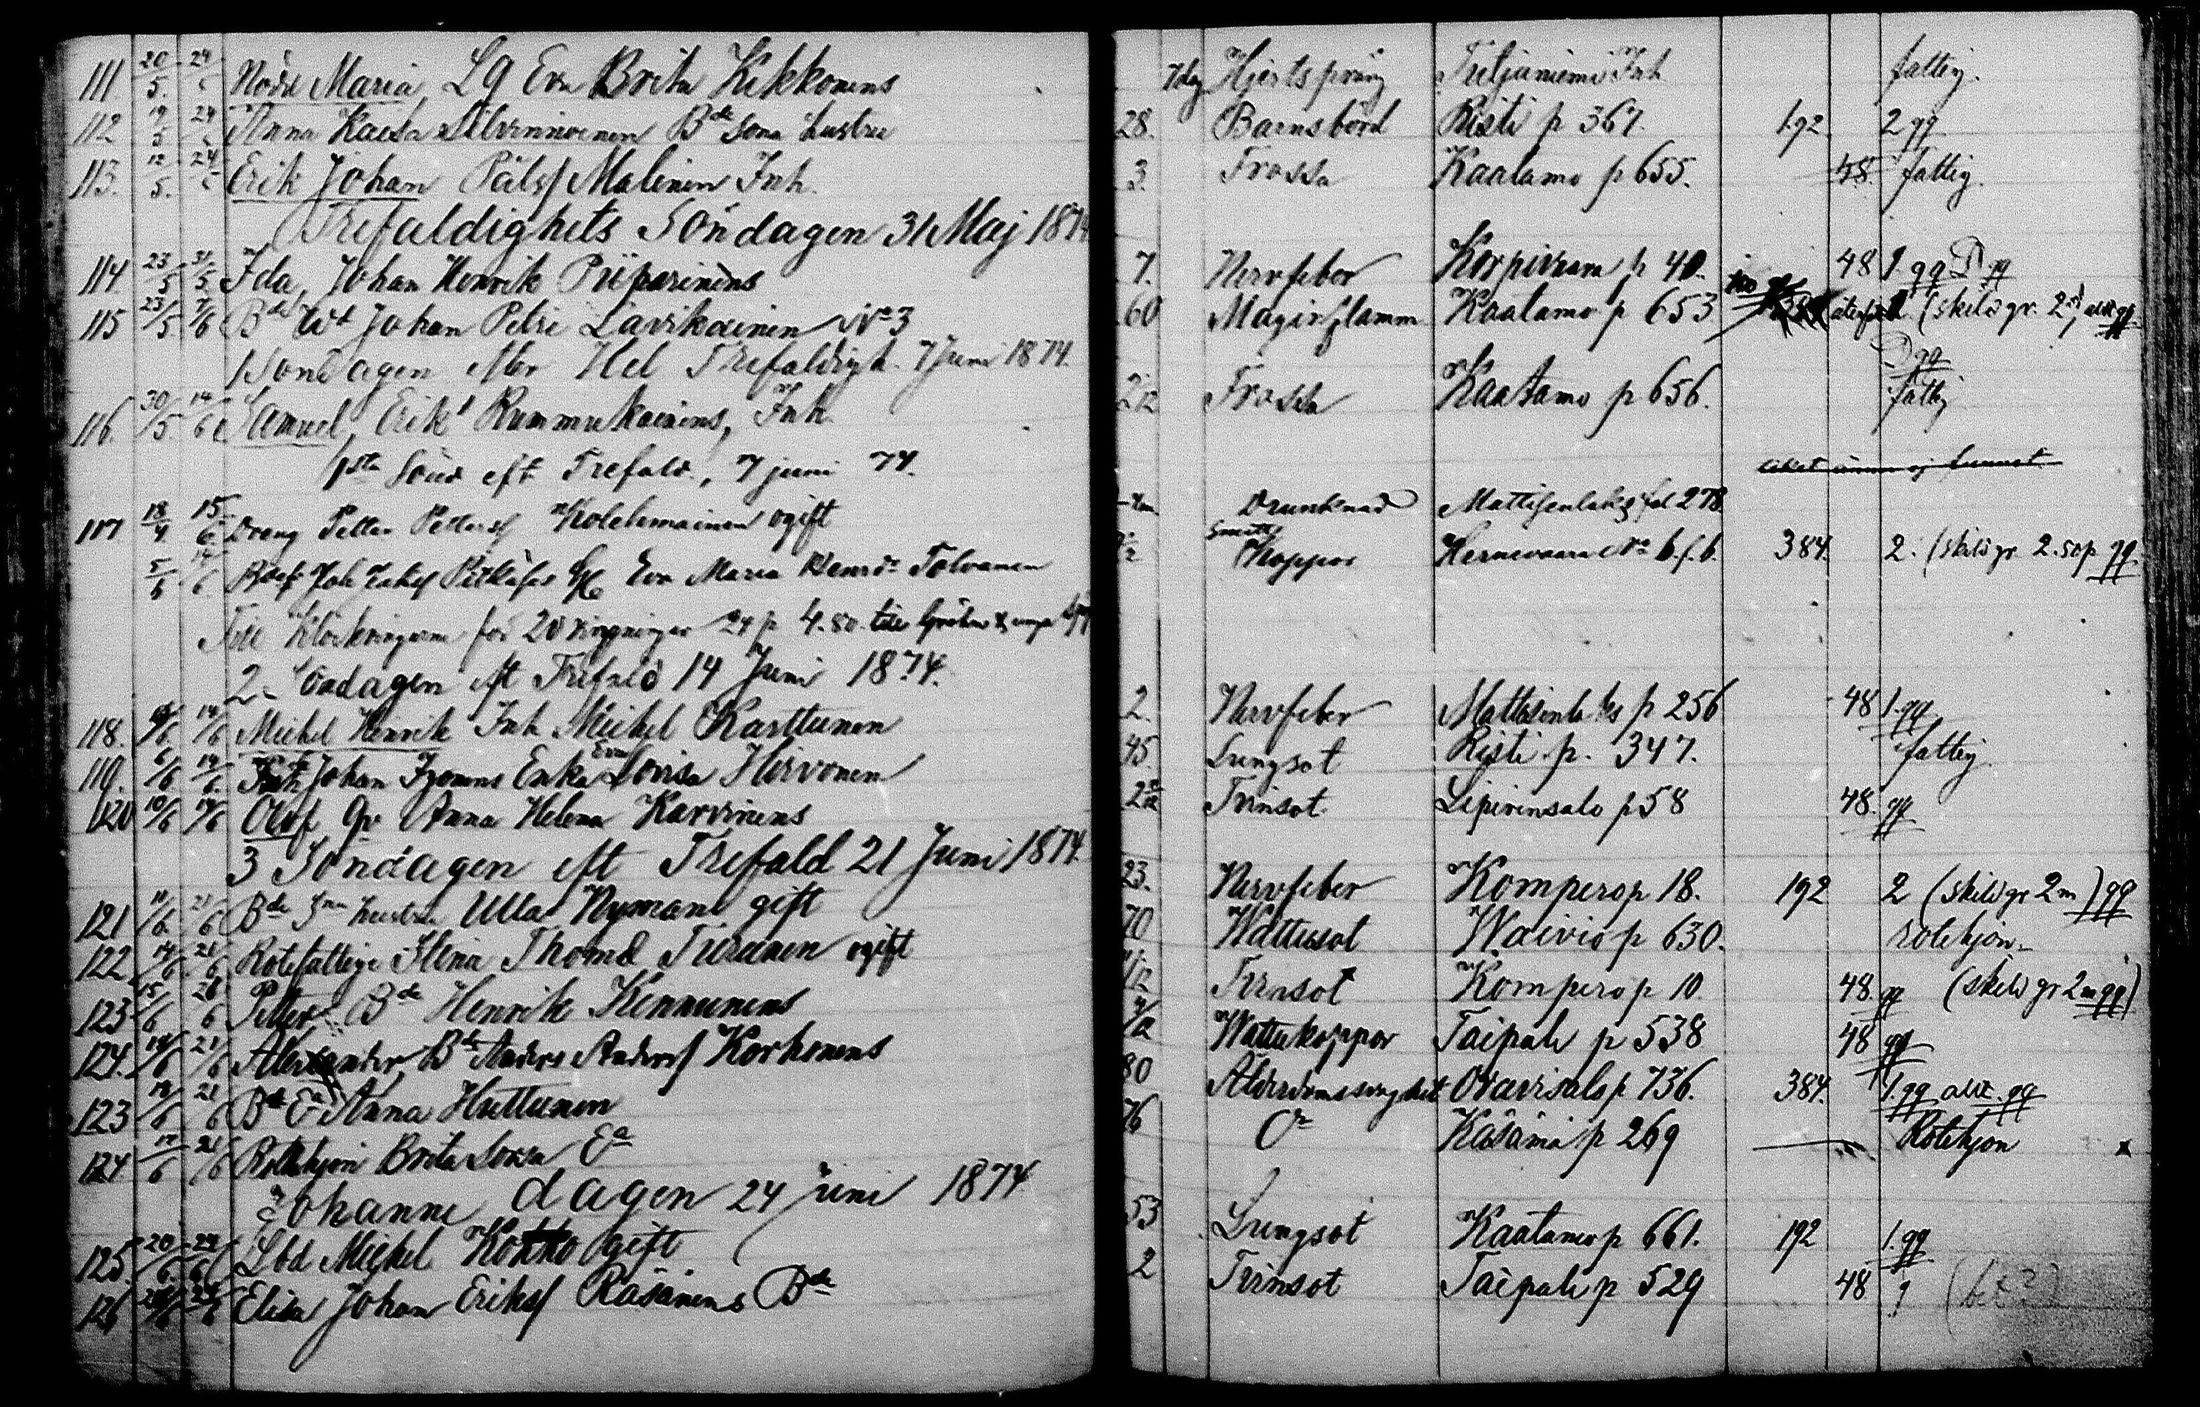 111 20/5. 24/5 Nödd Maria, Lg Eva Brita Kekkonens
112 19/5 24/5 Anna Kaisa Bde sons hustru
113. 12/5. 24/5 Erik Johan Pälsf Malinen Inh.
Trefaldighets Söndagen 31 Maj 1874
114 23/5 31/5 Ida, Johan Henrik Piiparinens
115 23/5 7/6 Johan Petri Lavikainen No 3
Söndagen efter Hel Trefaldigh. 7 Juni 1874.
116. 30/5. 14/6 Samuel, Erik Rummukainens, Inh
1sta Sönd eft Trefald., 7 juni 74.
117 18/4 15/6 Dreng Petter Pettersf Kolehmainen ogift
5/5 14/6 Joh Eva Maria Henrds Tolvanen
Till Klockringarne för 20 ringningar 24 p 4.80.
2 Söndagen eft Trefald 14 Juni 1874.
118. 14/6 Mickel Henrik Inh Mickel Karttunen
119. 6/6 14/6. Inh Johan Enka Eva Lovisa Hirvonen
120 10/6 14/6 Olof Qv Anna Helena Karvinens
3 Söndagen eft Trefald 21 Juni 1874.
121 11/6. 21/6 Bde Sns hustru Ulla Nymans gift
122 14/6 21/6 Rotefattige Elena Thomd Turunen ogift
123 15/6 21/6. Petter Bde Henrik Kinnunens
124. 18/6 21/6 Alexander, Bde Anders Andersf Korhonens
123 19/6 21/6 Bde Ea Anna Huttunen
124 17/6 21/6 Rotehjon Brita Ea
Johanne dagen 24 Juni 1874
125. 20/6. 24/6 Lbd Mickel Kokko gift
126 24/6 Elisa Johan Eriksf Räsänens Bde
7 dag Hjertsprång Inh fattig.
28. Barnsbörd Risti p 367. 192 2 gg
3. Trossa Kaatamo p 655. 48. fattig.
7. Nervfeber Korpivaara p 40. 48 1 gg D gg
60 Maginflamm Kaatamo p 653 (skild gr. 2
D gg
2/12 Trossa Kaatamo p 656. fattig
Drunknad Mattisenlaks fol 278
Smitt
Koppor Hernevaara No 6. f. 6. 384. 2. (skild gr. 2. 50 p gg
2. Nervfeber Mattisenlaks p 256 48 1. gg
45. Lungsot Risti p. 347. fattig
2/12 Tvinsot Liperinsalo p 58 48. gg
23. Nervfeber Kompero p 18. 192 2 (skild gr 2 m) gg
70 Wattusot Waivio p 630. rotehjon
/12 Tvinsot Kompero p 10. 48. gg (skild gr 2 m gg)
9/12 Wattukoppor Taipale p 538 48 gg
80 Ålderdomssvaghet Ovaarisalo p 736. 384. 1. gg gg
76 Do Käsämä p 269 Rotehjon x
53 Lungsot Kaatamo p 661. 192 1. gg
2 Tvinsot Taipale p 529 48 1